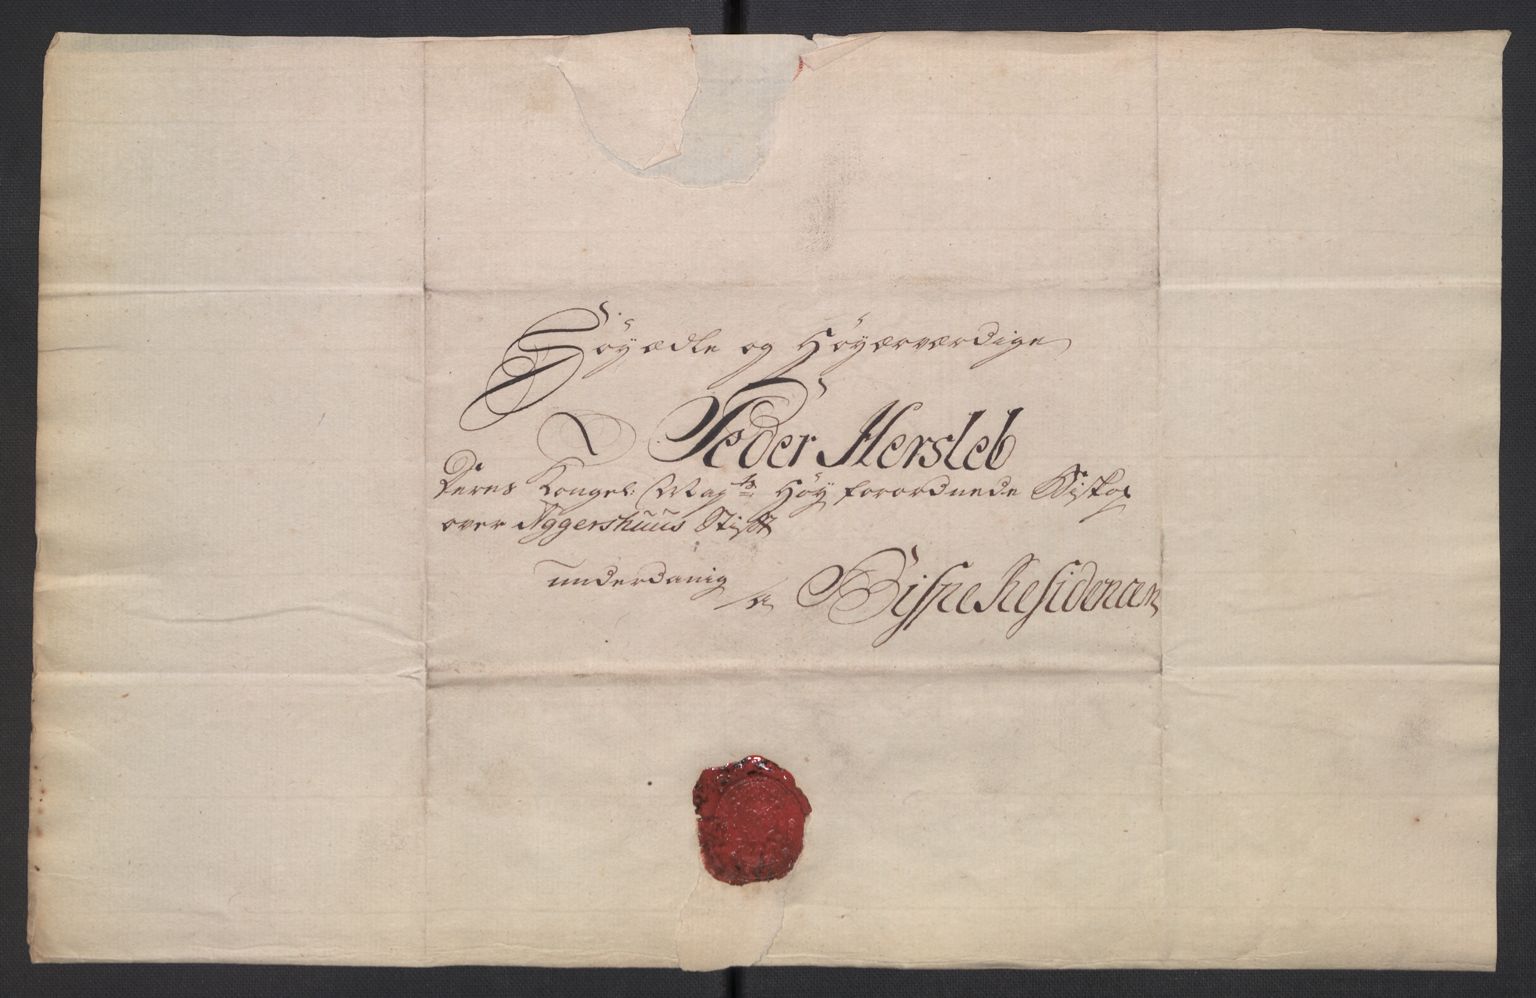 Höyædle og Höyærværdige
Peder Hersleb
Deres Kongel: May:ts Höy forordnede Biskop
over Aggershuus Stift
underdanig
a Bispe Residencen